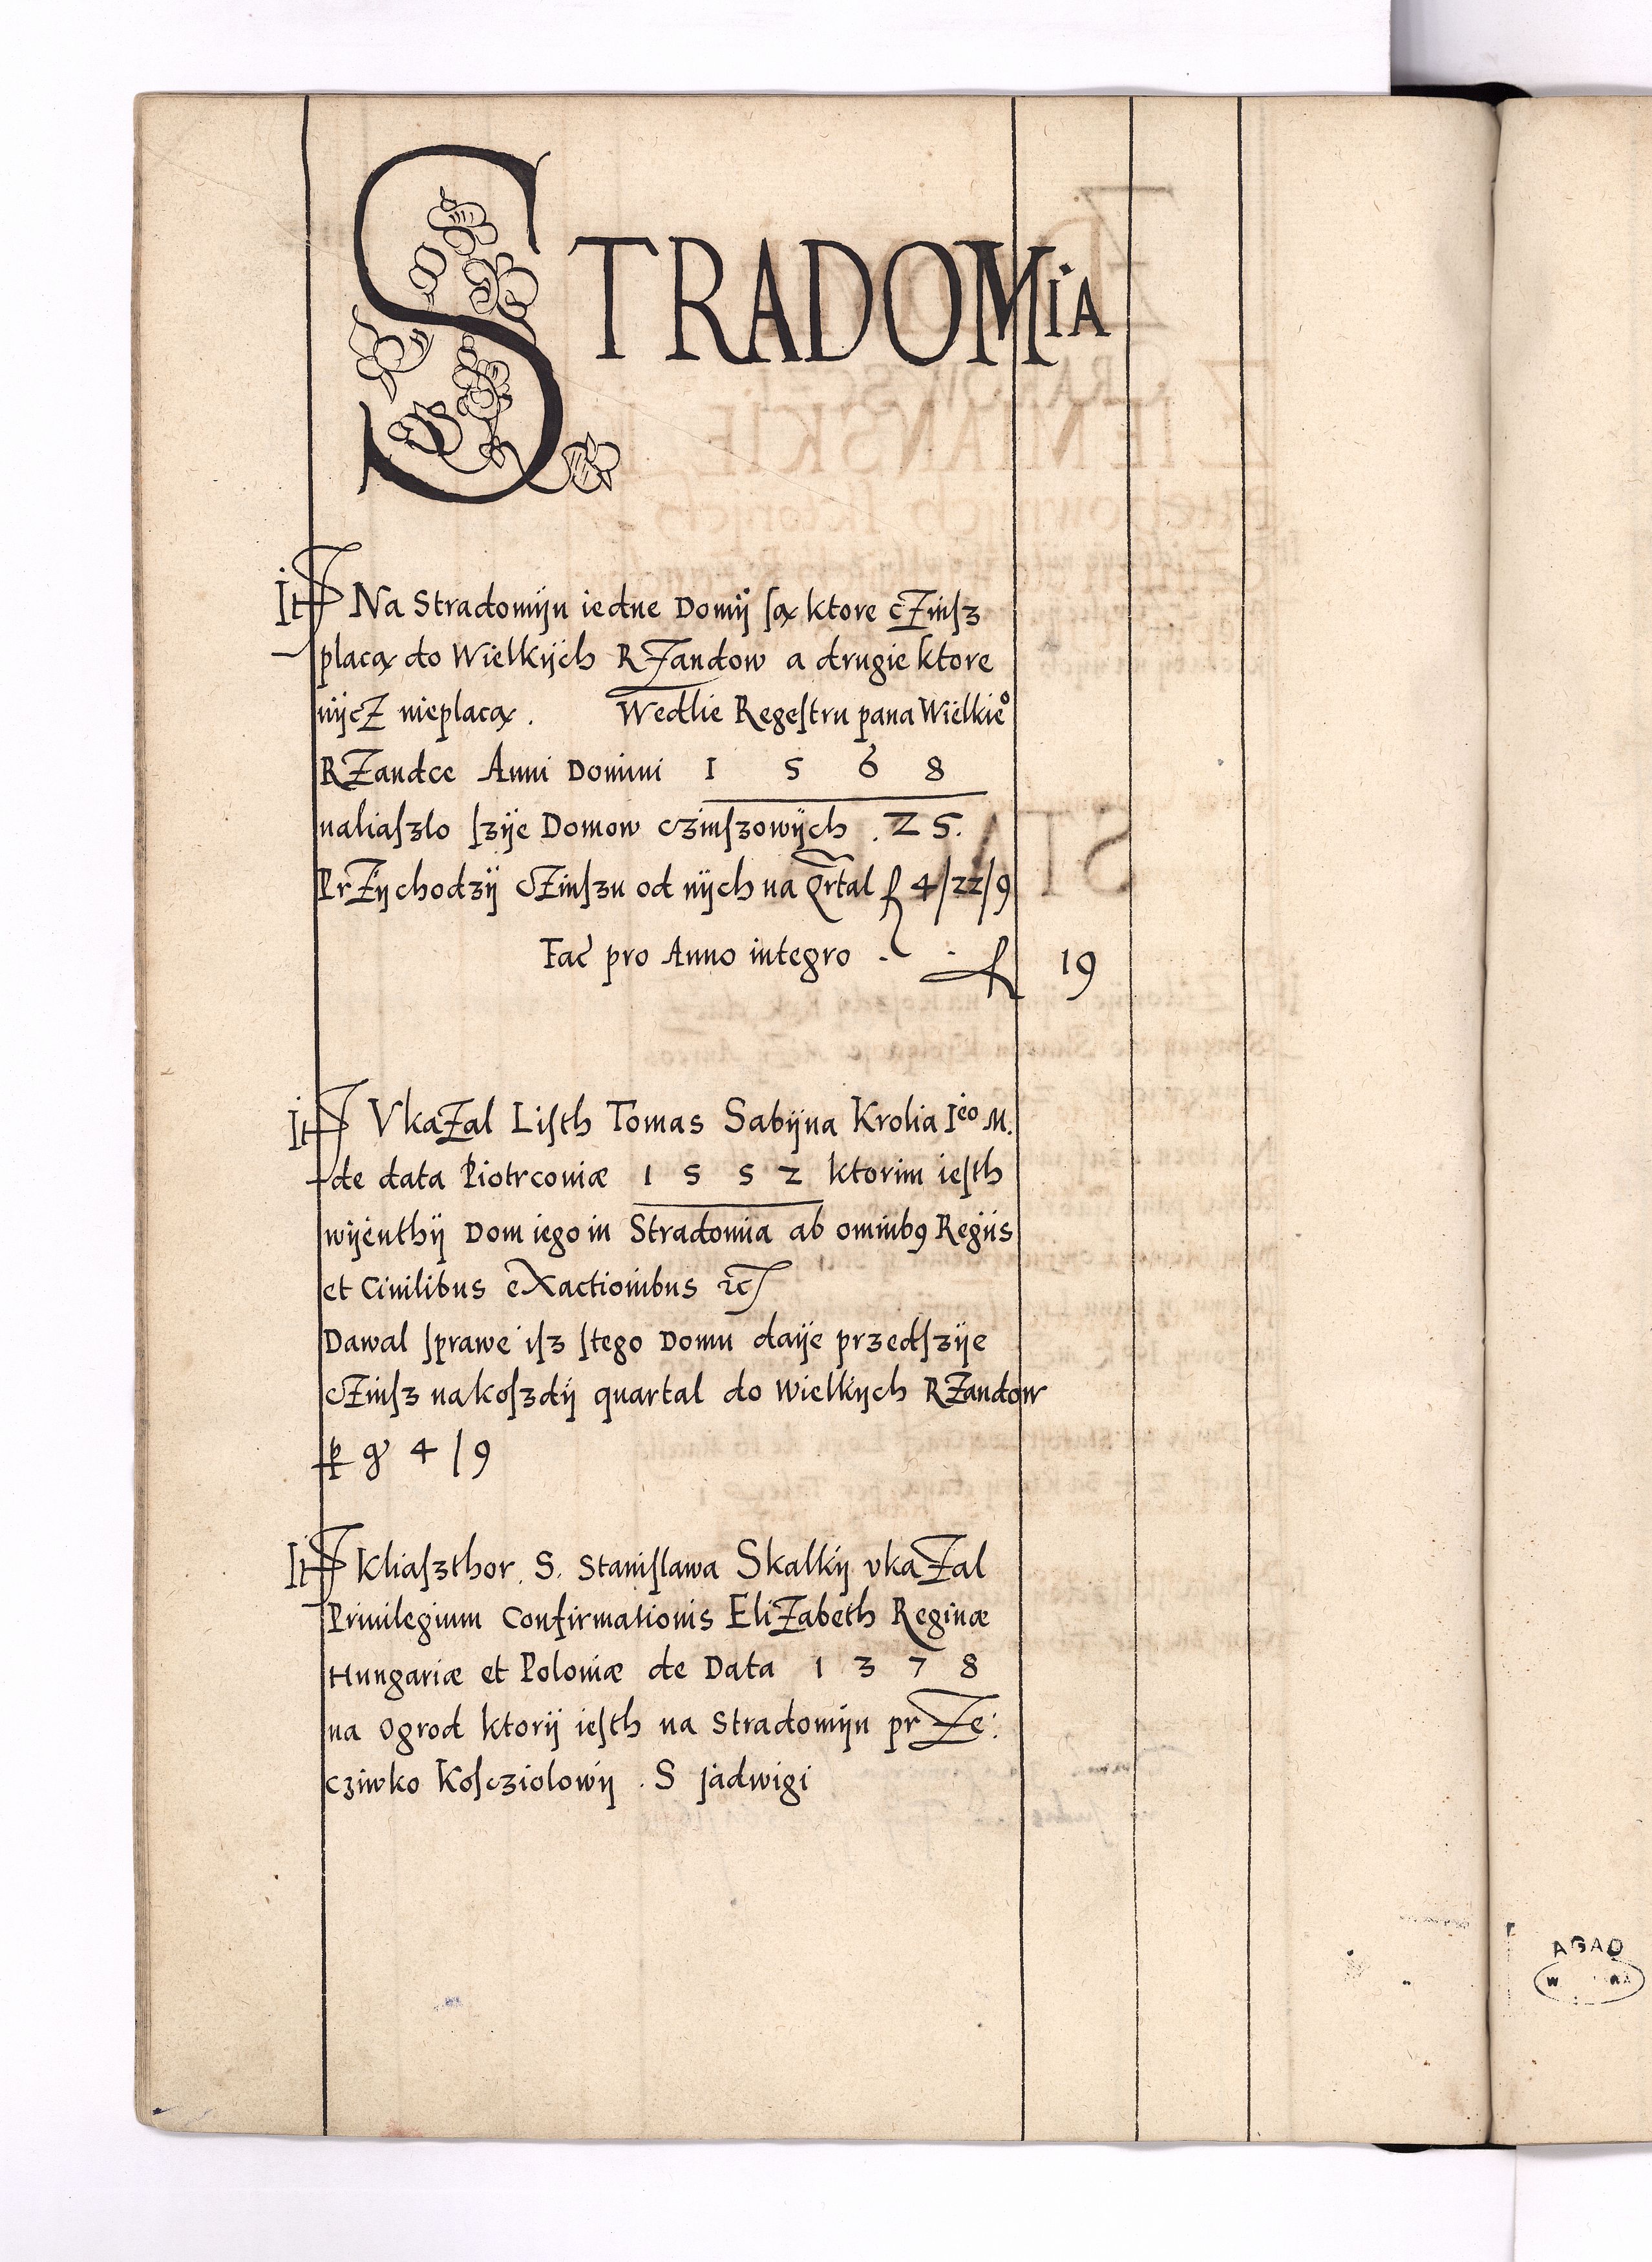 STRADOMiA
It Na Stradomijn iedne Domÿ ſą ktore cZinſz
placą do Wielkÿch RZandow a drugie ktore
nijcZ nieplacą . Wedlie Regeſtru pana Wielkie°
RZandce Anni Domini 1 5 6 8
naliaſzlo ſzÿe Domow czinſzowÿch . Z 5.
PrZÿchodzÿ cZinſzu od nÿch na Qrtal f 4/22/9
Fac pro Anno integro . . f 19
It VkaZal Liſth Tomas Sabÿna Krolia Ieo M.
de data Piotrconiæ 1 5 5 2 ktorim ieſth
wÿenthÿ Dom iego in Stradomia ab omnibꝫ Regiis
et Ciuilibus eXactionibus ꝛc
Dawal ſprawe iſz ſtego Domu daÿe przedſzÿe
cZinſz nakoſzdÿ quartal do Wielkÿch RZandow
ꝑ gr 4 / 9
It Kliaſzthor . S. Staniſlawa Skalkÿ vkaZal
Priuilegium Confirmationis EliZabeth Reginæ
Hungariæ et Poloniæ de Data 1 3 7 8
na Ogrod ktorÿ ieſth na Stradomÿn prZe:
cziwko Koſcziolowÿ . S jadwigi
AGAD